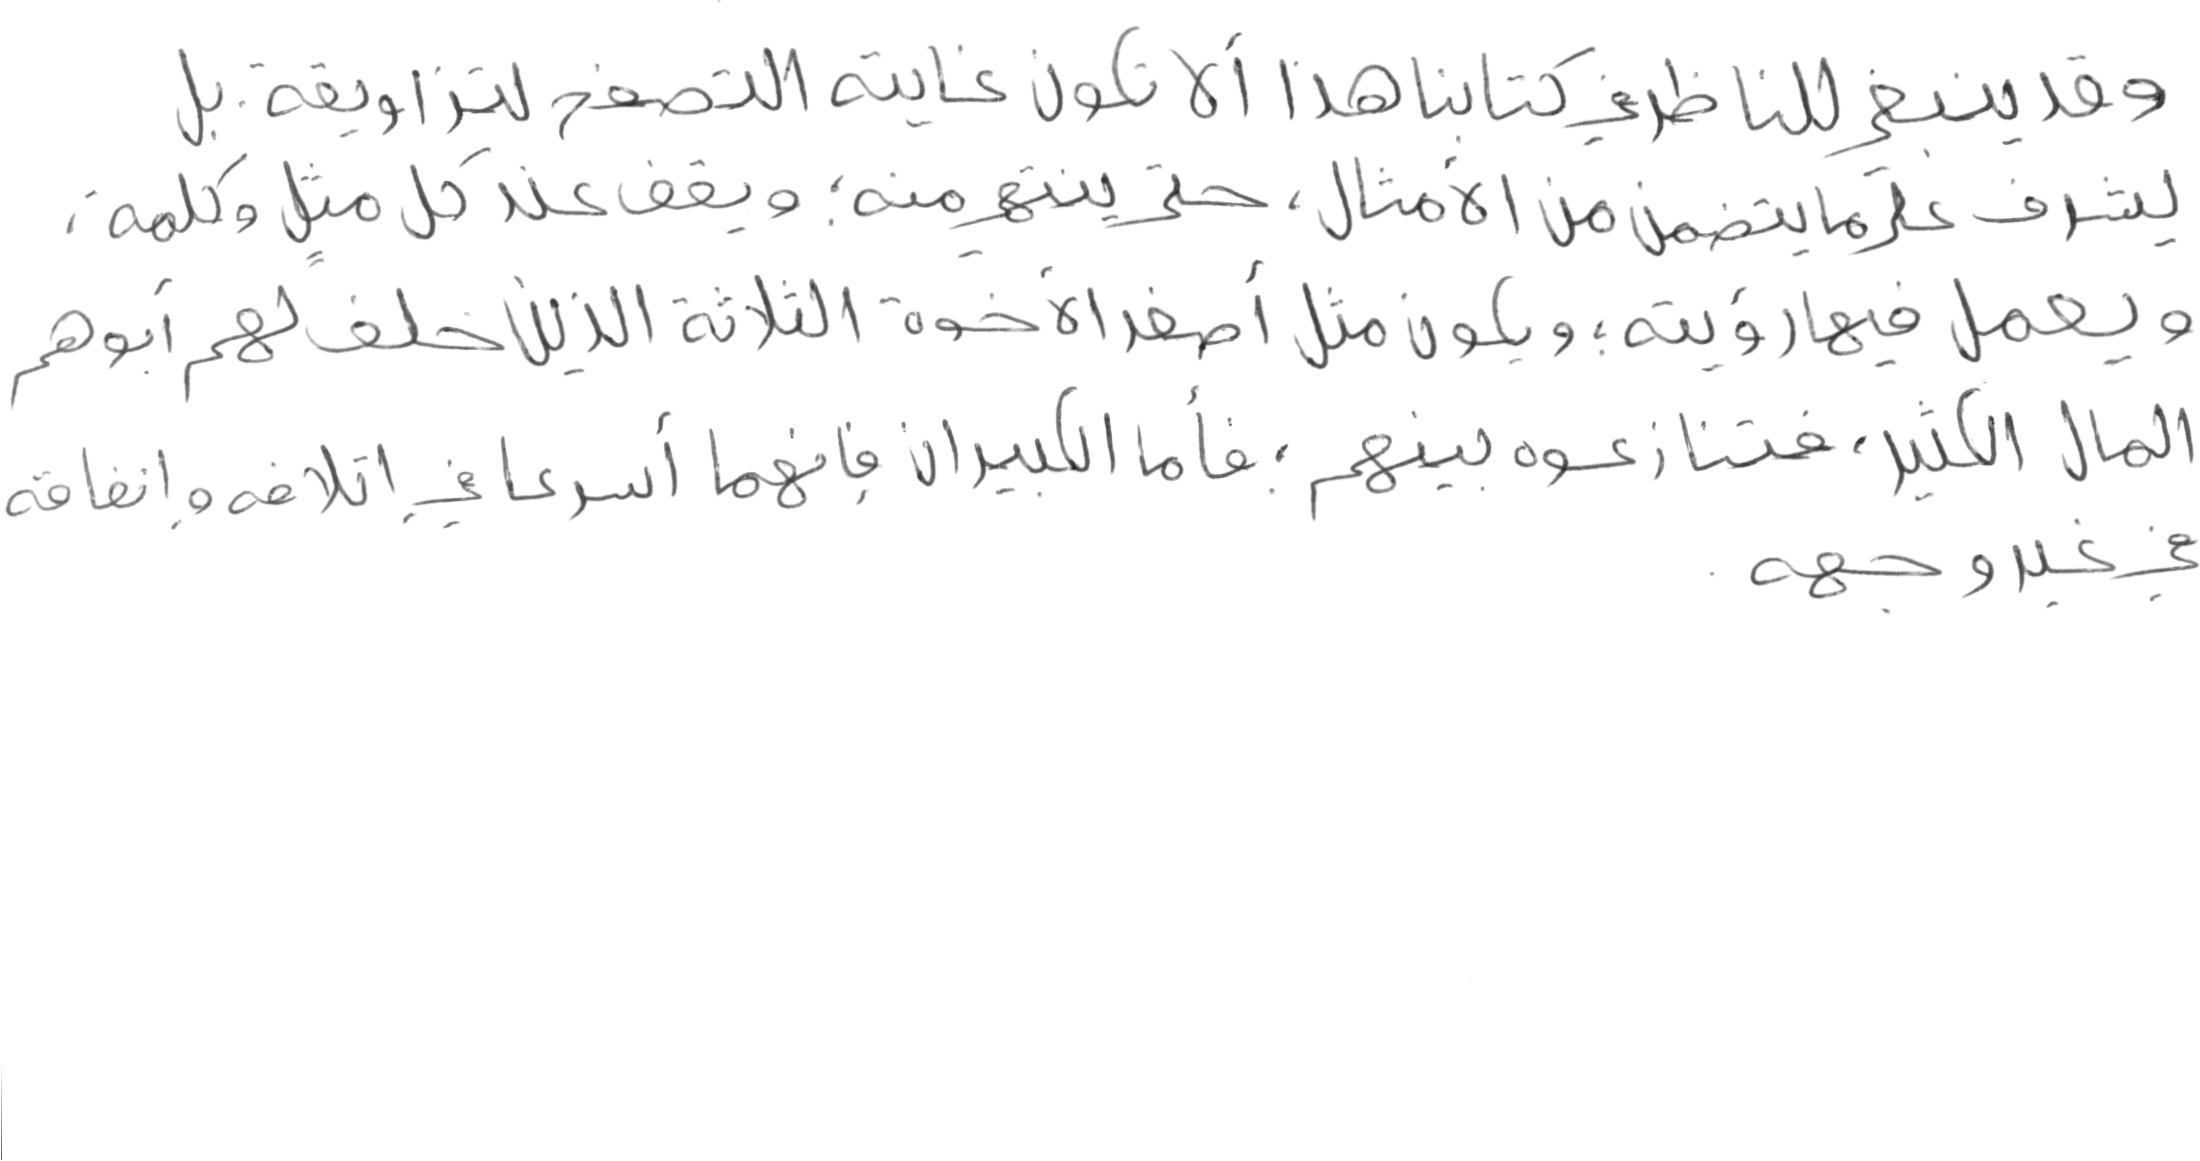 وقد ينبغي للناظر في كتابنا هذا ألا تكون غايته التصفح لتزاويقة: بل
يشرف على ما يتضمن من الأمثال، حتى ينتهي منه؛ ويقف عند كل مثلٍ وكلمة،
ويعمل فيها رؤيته؛ ويكون مثل أصغر الأخوة الثلاثة الذين خلف لهم أبوهم
المال الكثير، فتنازعوه بينهم؛ فأما الكبيران فإنهما أسرعا في إتلافه وإنفاقه
في غير وجهه.